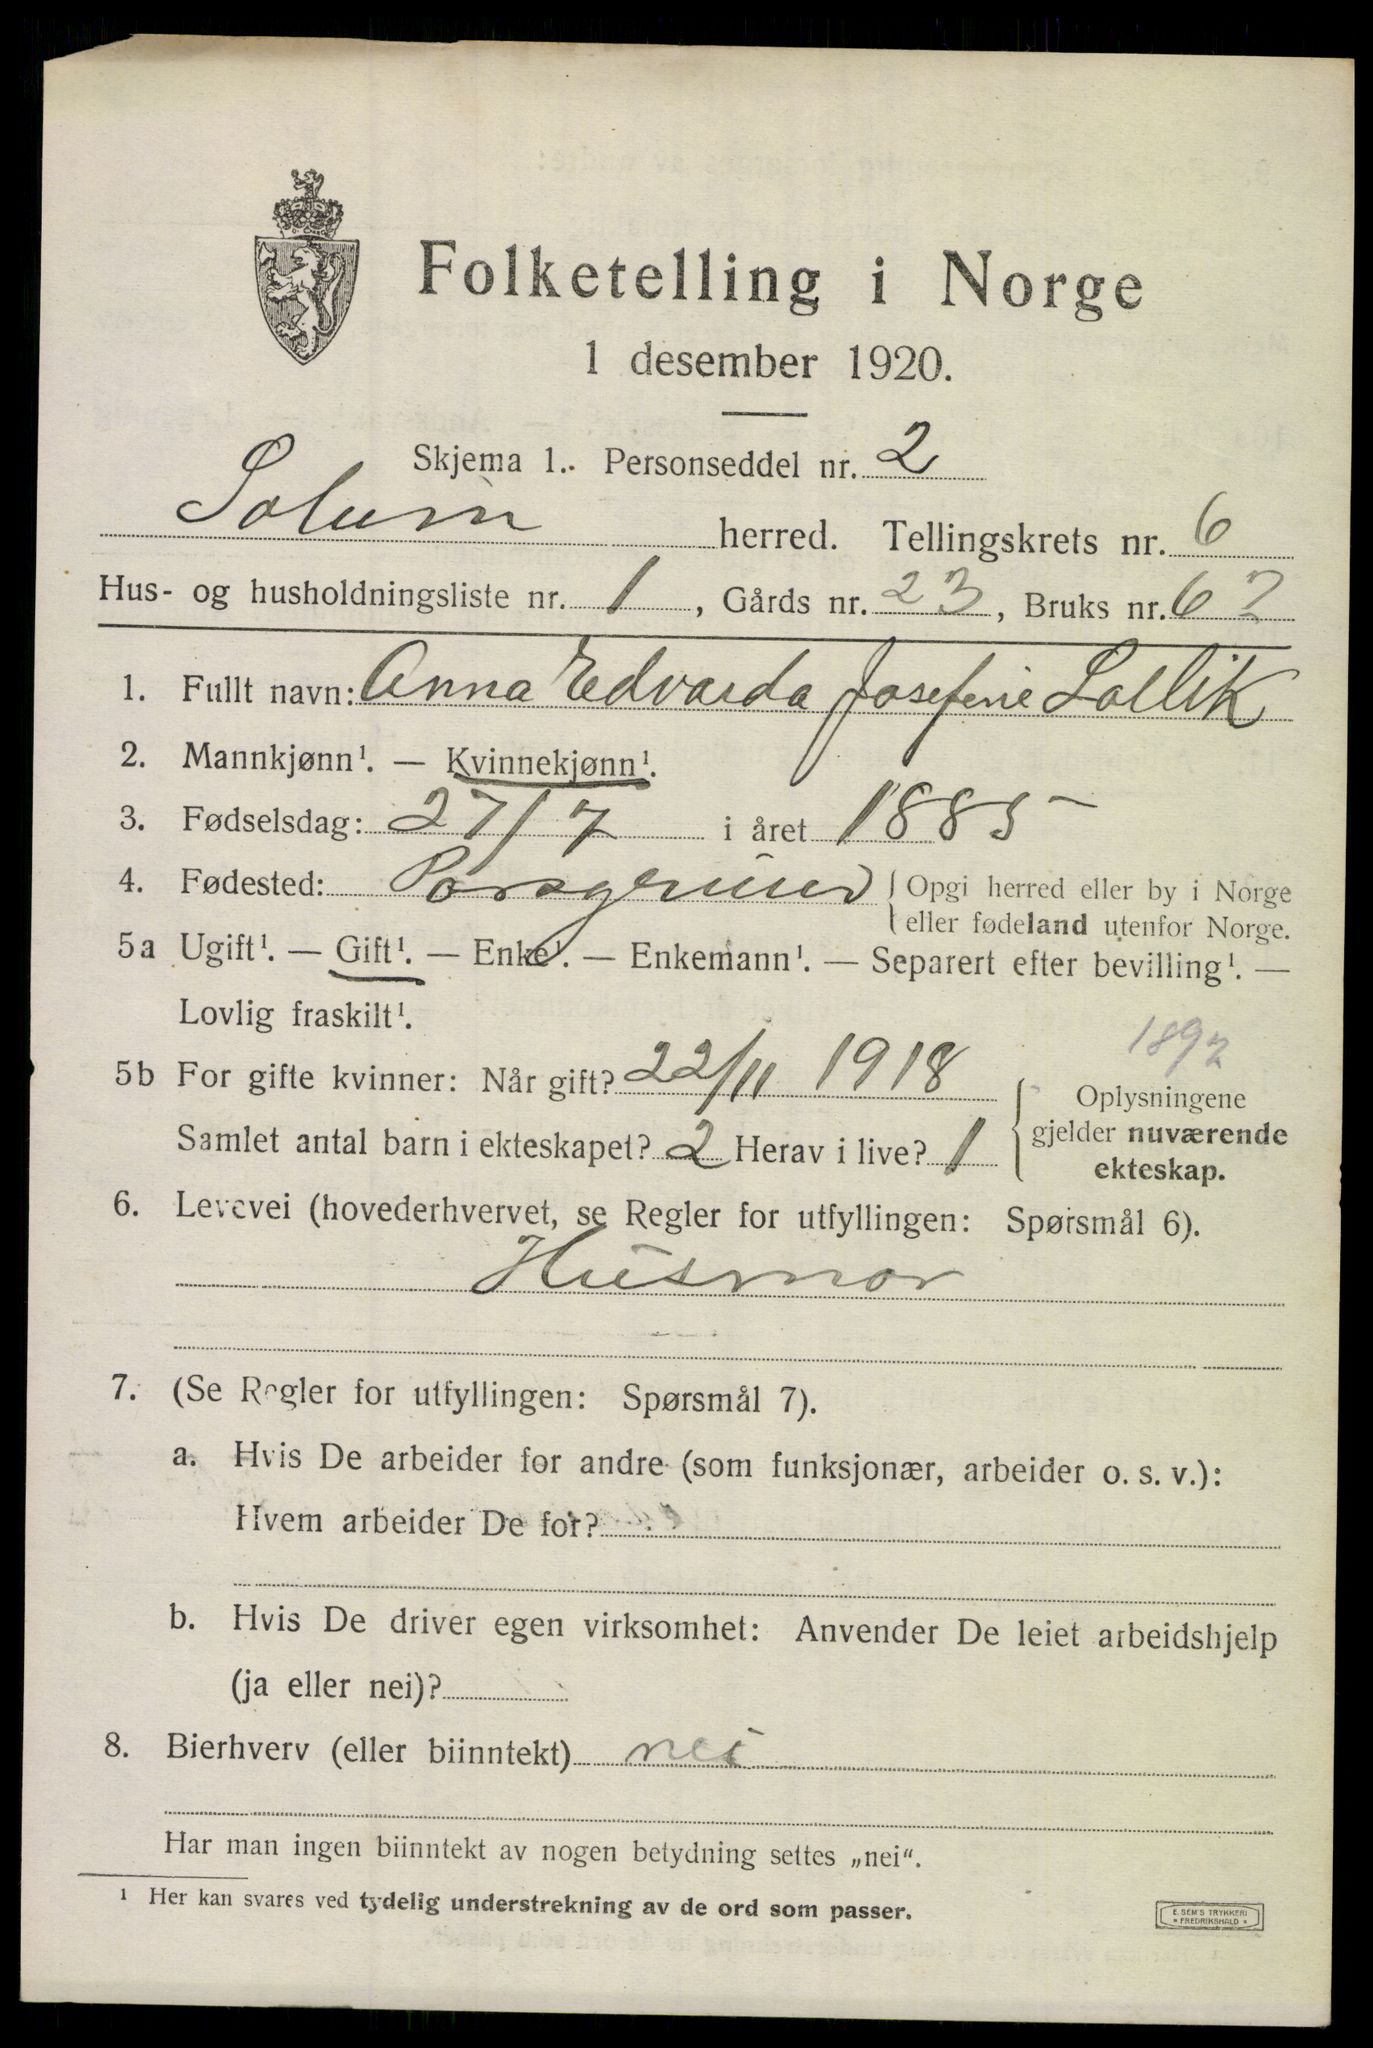 Folketelling i Norge
1 desember 1920.
Skjema 1. Personseddel nr. 2
Solum herred. Tellingskrets nr. 6
Hus- og husholdningsliste nr. 1, Gårds nr. 23, Bruks nr. 62
1. Fullt navn: Anna Edvarda Josefine Sollik
2. Mannkjønn¹. — Kvinnekjønn¹.
3. Fødselsdag: 27/7 i året 1885
4. Fødested: Porsgrund {Opgi herred eller by i Norge
eller fødeland utenfor Norge.
5a Ugift¹. — Gift¹. — Enke¹. — Enkemann¹. — Separert efter bevilling¹. —
Lovlig fraskilt¹.
1892
5b For gifte kvinner: Når gift? 22/11 1918
Samlet antal barn i ekteskapet? 2 Herav i live? 1
Oplysningene
gjelder nuværende
ekteskap.
6. Levevei (hovederhvervet, se Regler for utfyllingen: Spørsmål 6).
Husmor
7. (Se Regler for utfyllingen: Spørsmål 7).
a. Hvis De arbeider for andre (som funksjonær, arbeider o. s. v.):
Hvem arbeider De for?
b. Hvis De driver egen virksomhet: Anvender De leiet arbeidshjelp
(ja eller nei)?
8. Bierhverv (eller biinntekt) nei
Har man ingen biinntekt av nogen betydning settes „nei“.
¹ Her kan svares ved tydelig understrekning av de ord som passer.
E. SEM'S TRYKKERI
* FREDRIKSHALD *